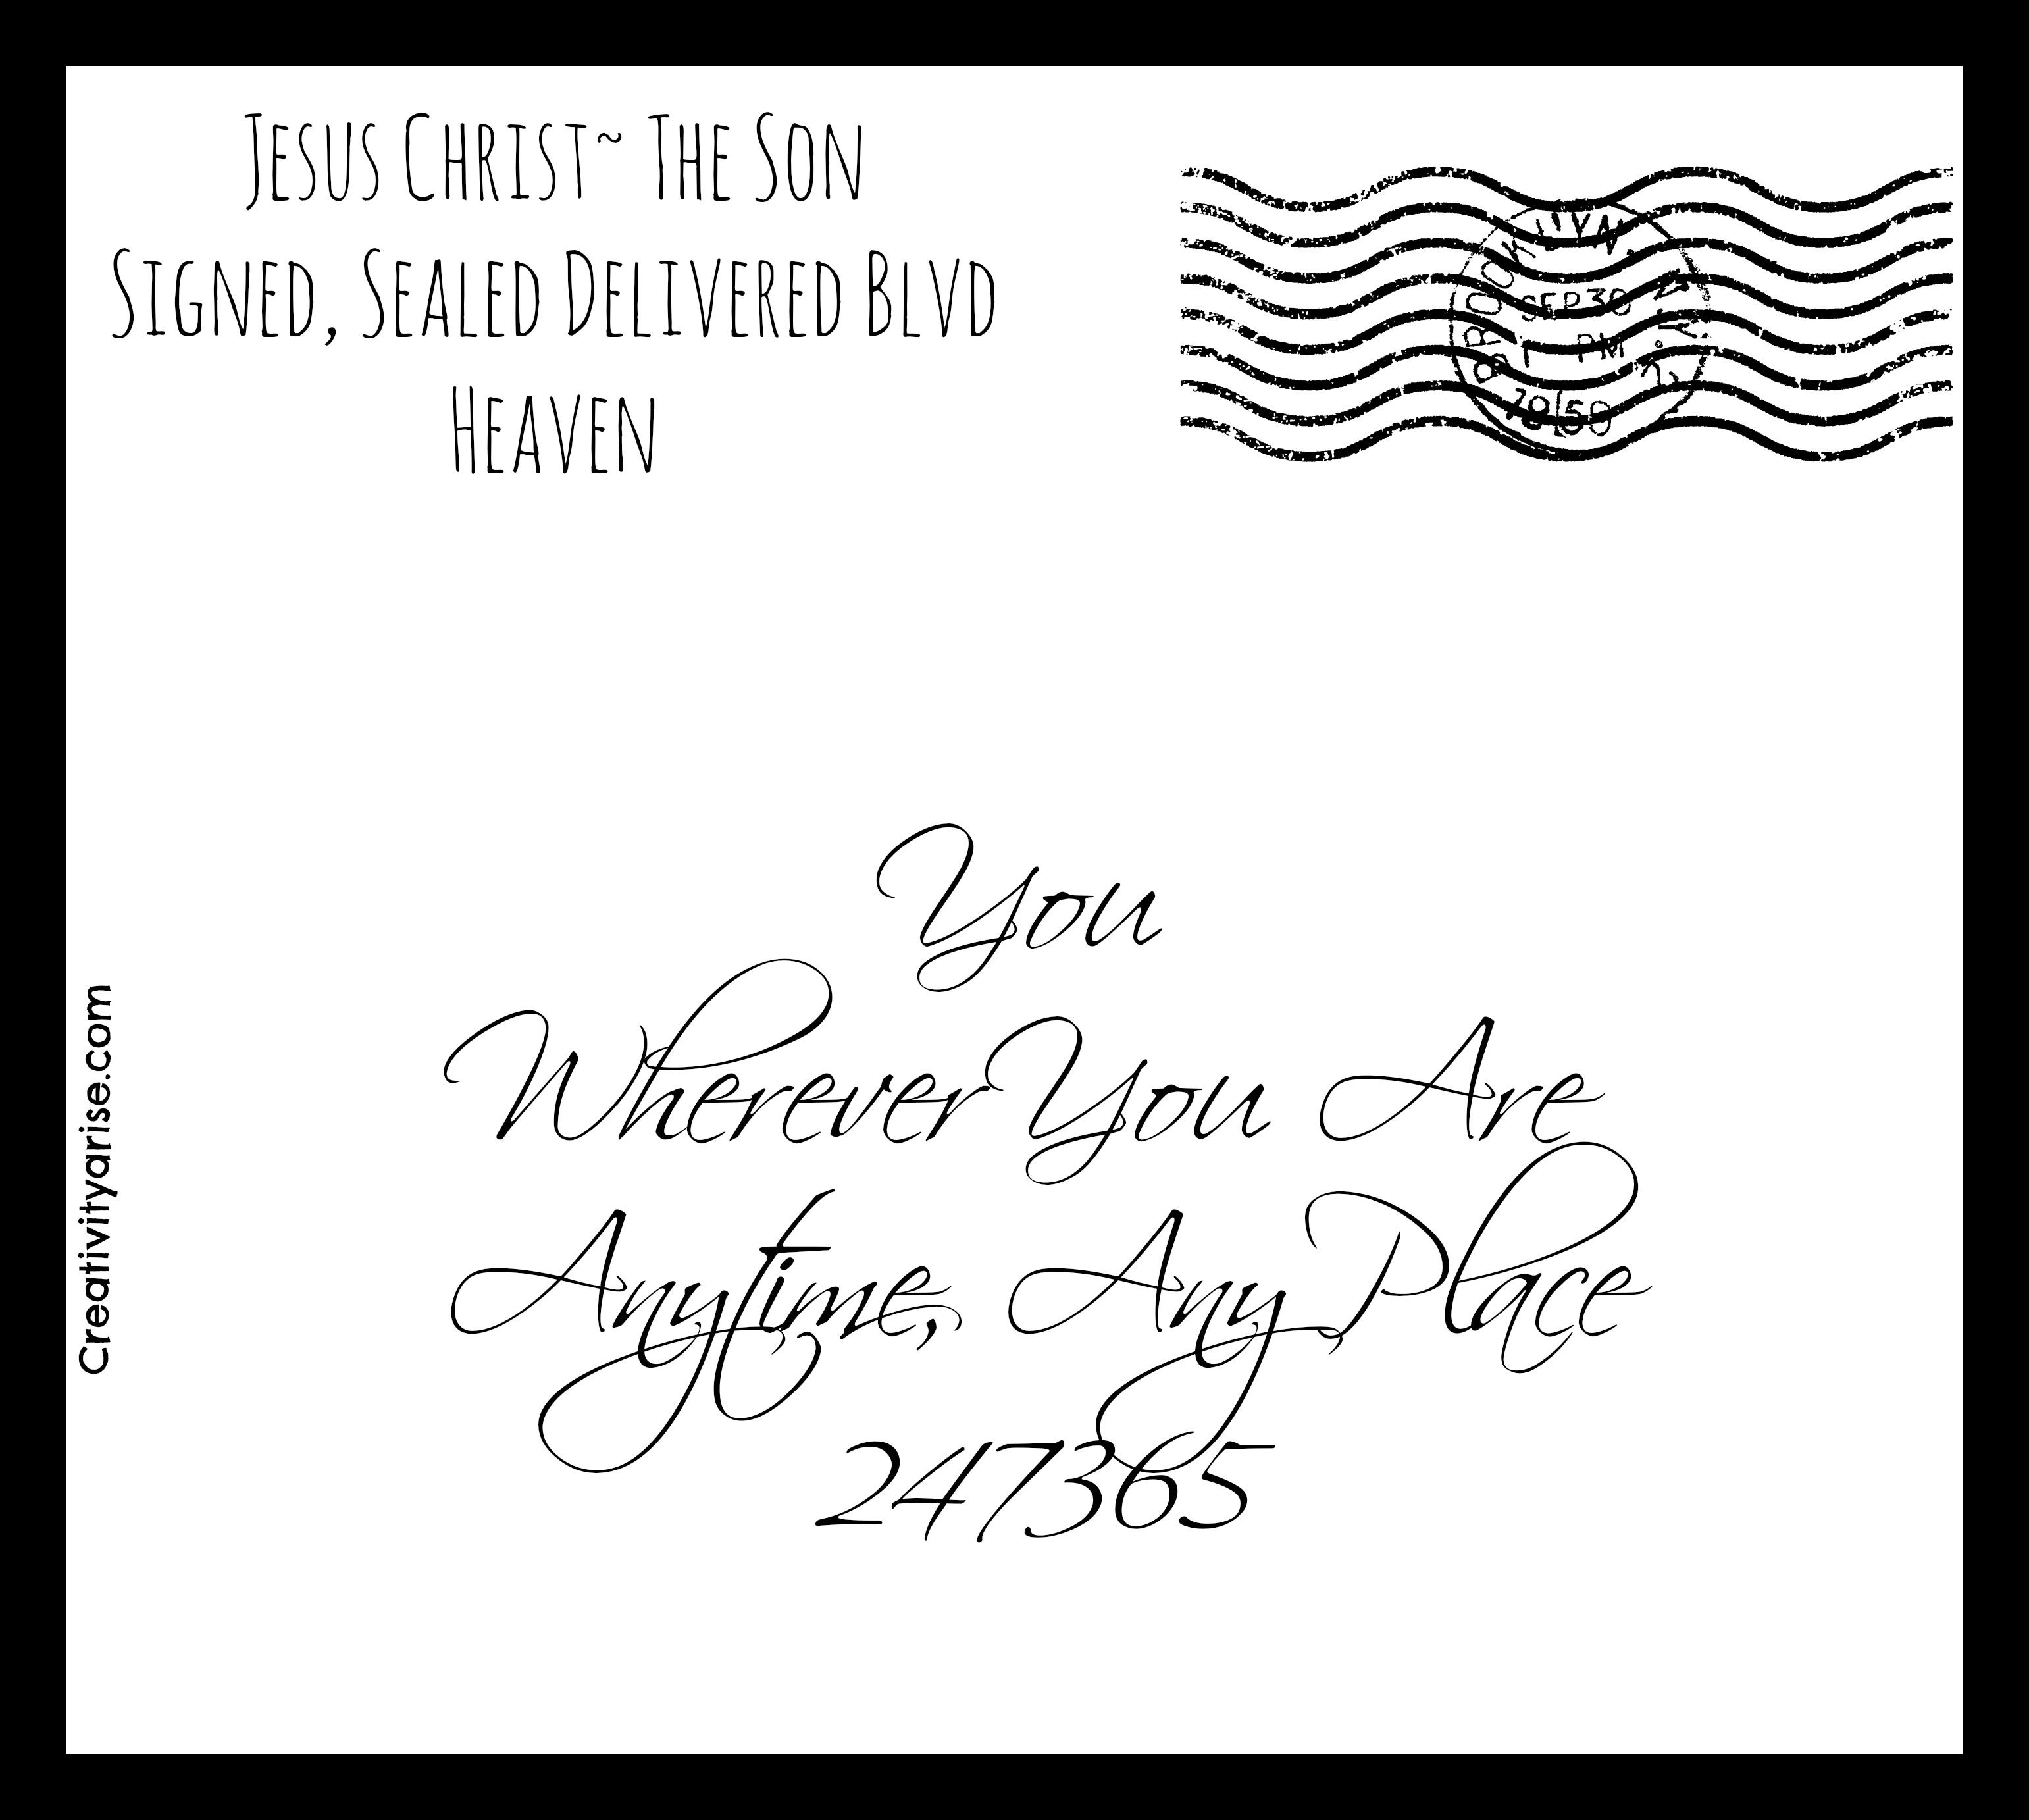 Jesus Christ~ The Son
Signed, Sealed Delivered Blvd
Heaven
BROOKLYN. N.Y.
SEP 30
PM
You
Wherever You Are
Anytime, Any Place
247365
Creativityarise.com